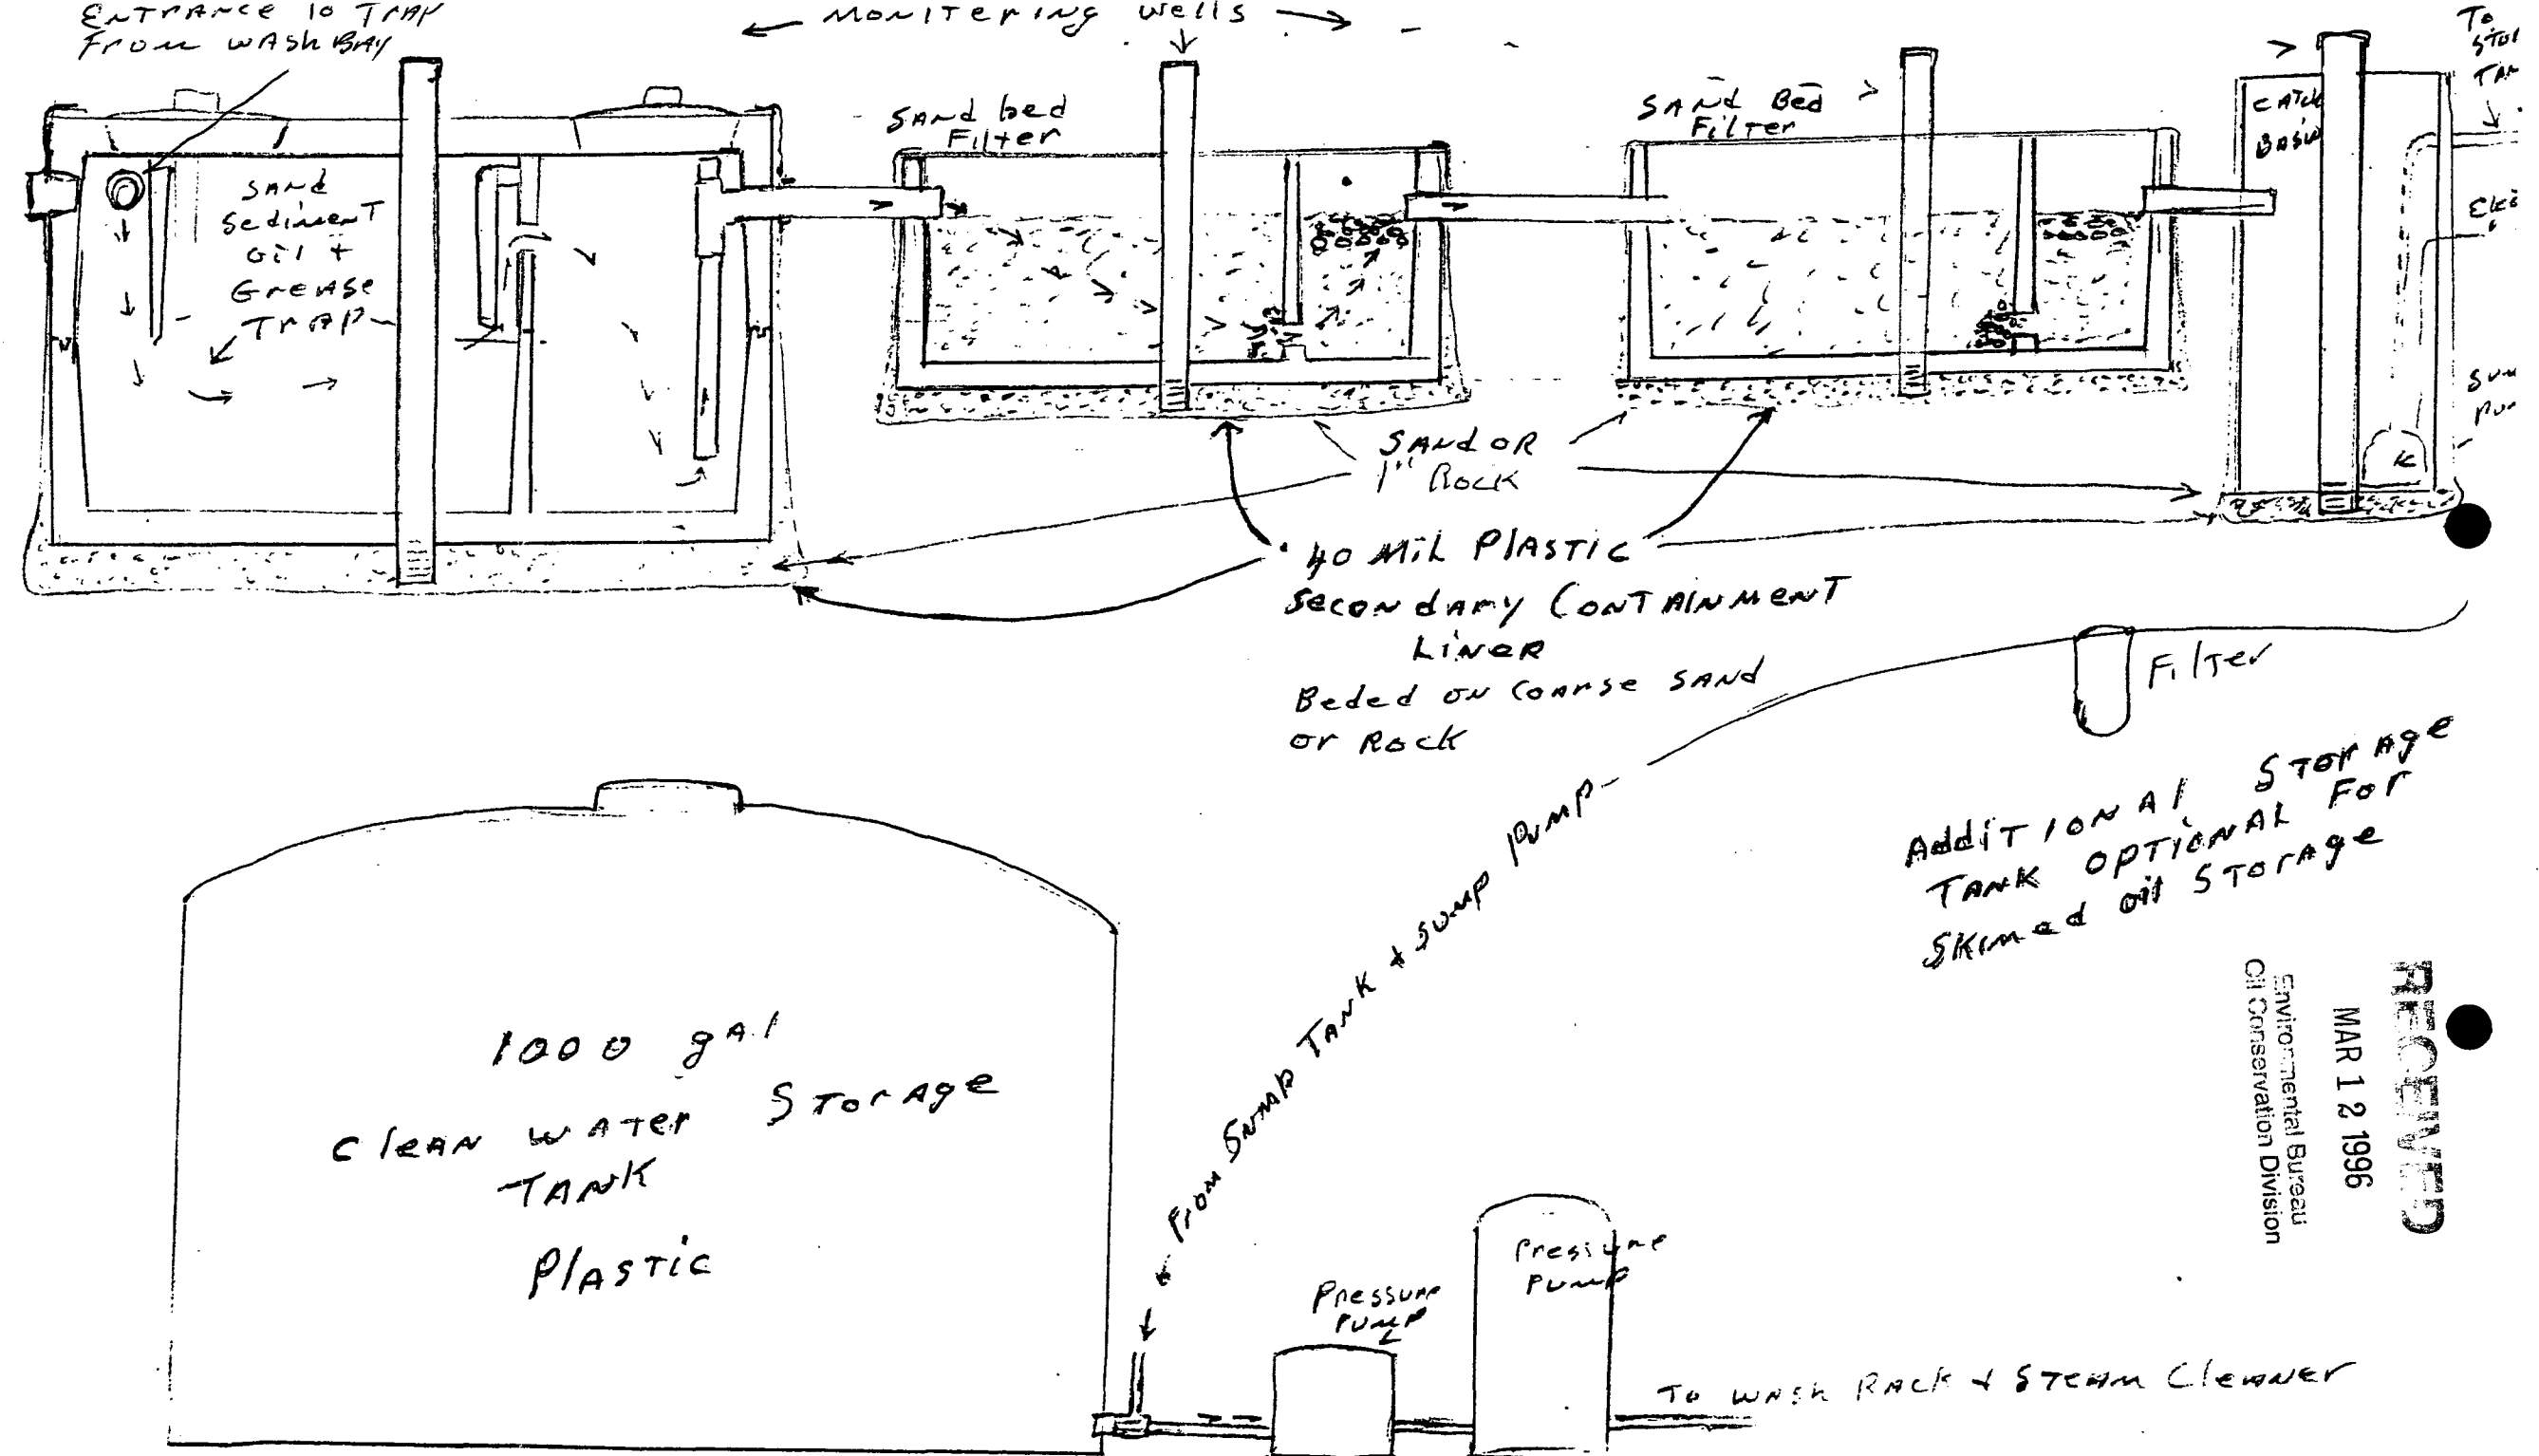 ENTRANCE TO TRAP
From WASH BAY
MONITERING Wells
SAND
Sediment
oil +
GreASe
TrAP
SAnd bed
Filter
SANd Bed
Filter
CATCH
BASIN
To
SANd OR
1" Rock
40 Mil PlASTIC
Secondary ConTAINMENT
LINER
Beded on CoArse SAND
or Rock
Filter
AddiTIONAl STorAge
TANK OPTIONAL For
Skimed oil STorAge
From Sump TANK & Sump Pump
1000 gAl
CleAN WATer STorAge
TANK
PlAsTic
Pressure
Pump
Pressure
Pump
To WASh RACK & STeAm CleANer
RECEIVED
MAR 12 1996
Environmental Bureau
Oil Conservation Division